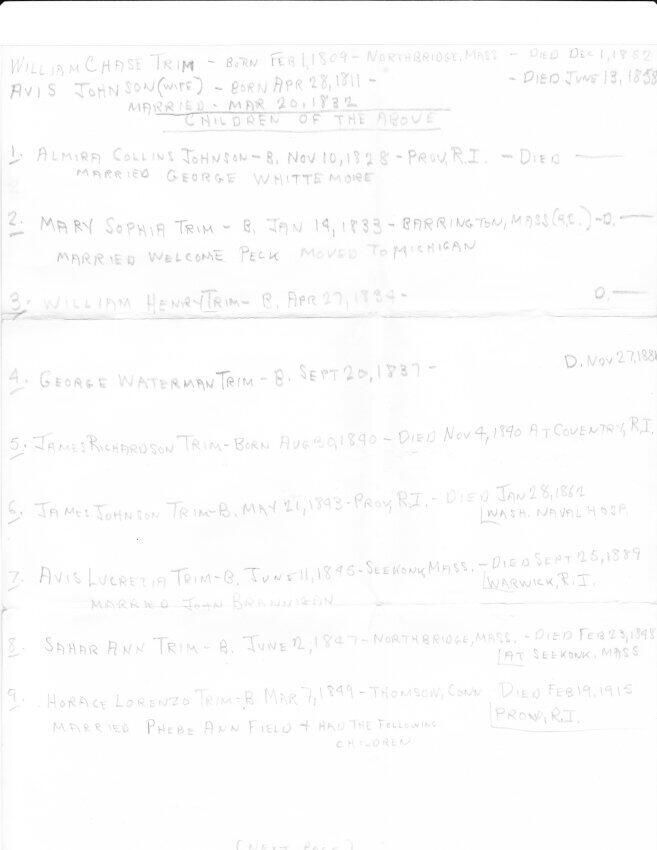 WILLIAM CHASE TRIM - BORN FEB 1, 1809 - NORTHBRIDGE, MASS - DIED DEC 1, 1852
AVIS JOHNSON (WIFE) - BORN APR 28, 1811 - - DIED JUNE 13, 1858
MARRIED - MAR 20, 1832
CHILDREN OF THE ABOVE
1. ALMIRA COLLINS JOHNSON - B. NOV 10, 1828 - PROV, R.I. - DIED ——
MARRIED GEORGE WHITTEMORE
2. MARY SOPHIA TRIM - B. JAN 14, 1833 - BARRINGTON, MASS (R.I.) - D. ——
MARRIED WELCOME PECK MOVED TO MICHIGAN
3. WILLIAM HENRY TRIM - B. APR 27, 1834 - D. ——
4. GEORGE WATERMAN TRIM - B. SEPT 20, 1837 - D. NOV 27, 1881
5. JAMES RICHARDSON TRIM - BORN AUG 30, 1840 - DIED NOV 4, 1840 AT COVENTRY, R.I.
6. JAMES JOHNSON TRIM - B. MAY 21, 1843 - PROV, R.I. - DIED JAN 28, 1862
WASH. NAVAL HOSP.
7. AVIS LUCREZIA TRIM - B. JUNE 11, 1845 - SEEKONK, MASS. - DIED SEPT 25, 1889
WARWICK, R.I.
MARRIED JOHN BRANNIGAN
8. SAHAR ANN TRIM - B. JUNE 12, 1847 - NORTHBRIDGE, MASS. - DIED FEB 23, 1848
AT SEEKONK, MASS
9. HORACE LORENZO TRIM - B MAR 7, 1849 - THOMSON, CONN DIED FEB 19, 1915
PROV, R.I.
MARRIED PHEBE ANN FIELD + HAD THE FOLLOWING
CHILDREN
(NEXT PAGE)